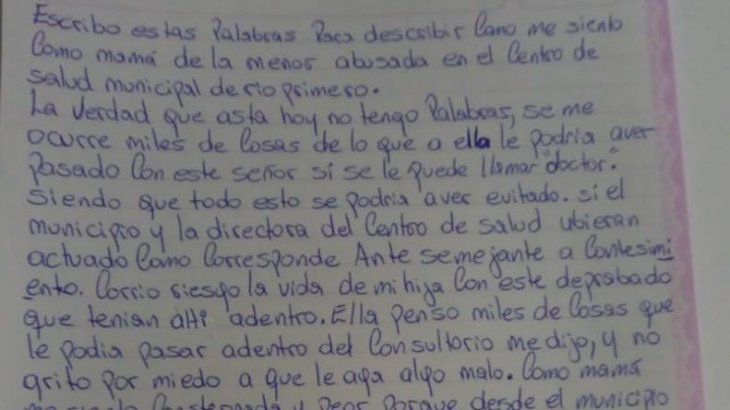 Escribo estas Palabras Para describir Como me siento
Como mamá de la menor abusada en el Centro de
salud municipal de rio primero.
La Verdad que asta hoy no tengo Palabras, se me
ocurre miles de Cosas de lo que a ella le podria aver
Pasado Con este señor si se le puede llamar "doctor".
Siendo que todo esto se podria aver evitado. si el
municipio y la directora del Centro de salud ubieran
actuado Como Corresponde Ante semejante a Contesimi
ento. Corrio riesgo la vida de mi hija Con este deprabado
que tenian alli adentro. Ella penso miles de Cosas que
le podia pasar adentro del Consultorio me dijo, y no
grito por miedo a que le aga algo malo. Como mamá
me siento Consternada y peor porque desde el municipio